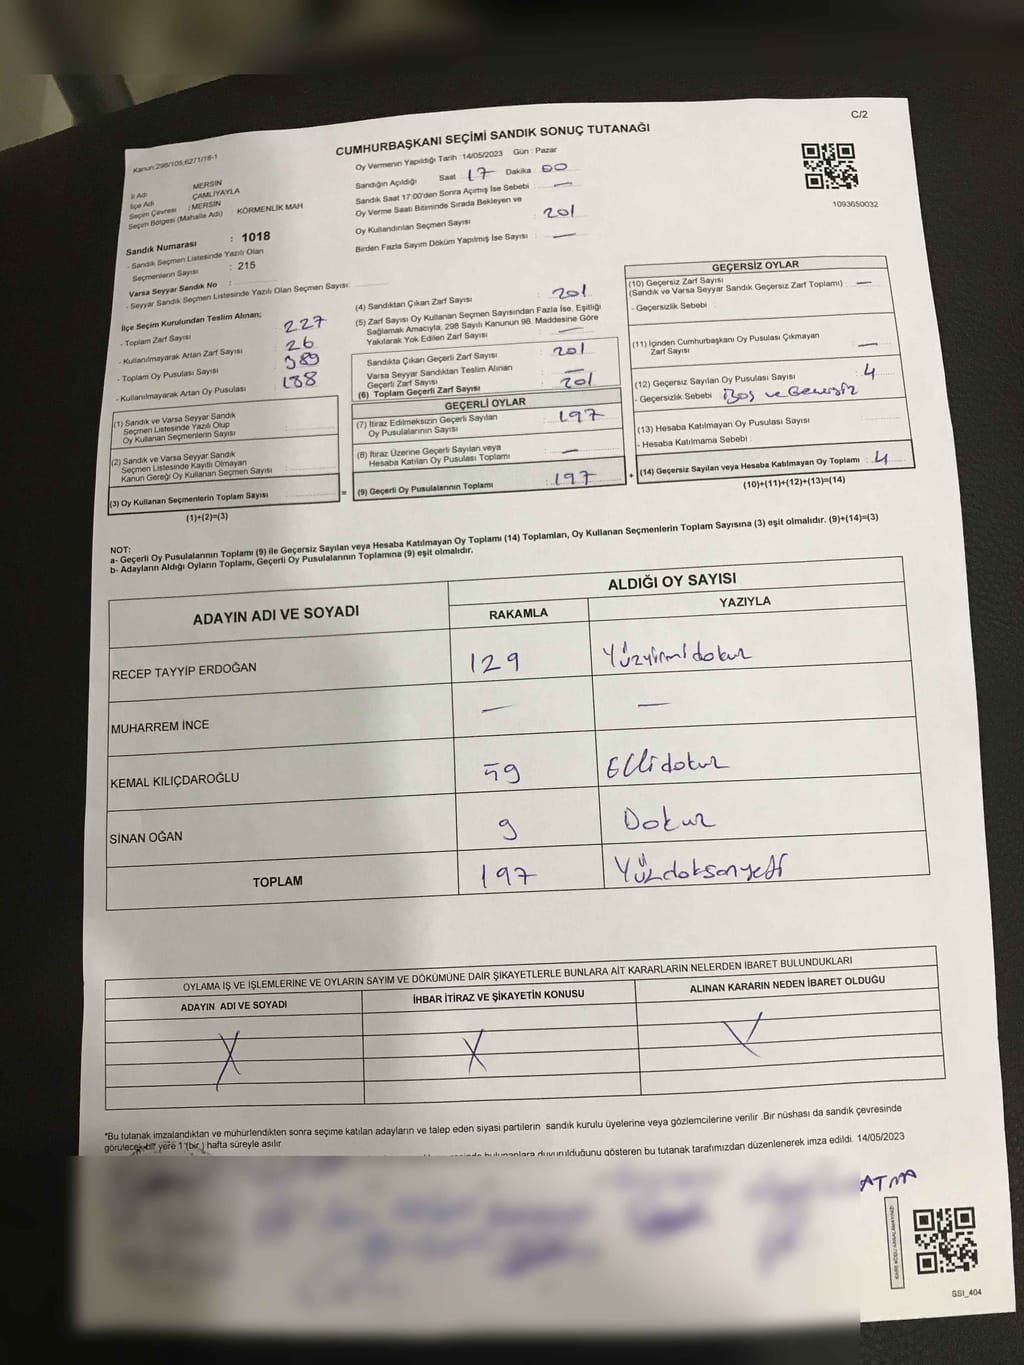 C/2
Kanun:298/105,6271/18-1
CUMHURBAŞKANI SEÇİMİ SANDIK SONUÇ TUTANAĞI
İl Adı : MERSİN
İlçe Adı : ÇAMLIYAYLA
Seçim Çevresi : MERSİN
Seçim Bölgesi (Mahalle Adı) : KÖRMENLİK MAH
Sandık Numarası : 1018
- Sandık Seçmen Listesinde Yazılı Olan
Seçmenlerin Sayısı : 215
Varsa Seyyar Sandık No :
- Seyyar Sandık Seçmen Listesinde Yazılı Olan Seçmen Sayısı:
Oy Vermenin Yapıldığı Tarih :14/05/2023 Gün : Pazar
Sandığın Açıldığı Saat 17 Dakika 00
Sandık Saat 17:00'den Sonra Açımış İse Sebebi : —
Oy Verme Saati Bitiminde Sırada Bekleyen ve
Oy Kullandırılan Seçmen Sayısı : 201
Birden Fazla Sayım Döküm Yapılmış İse Sayısı : —
1093650032
İlçe Seçim Kurulundan Teslim Alınan;
- Toplam Zarf Sayısı 227
- Kullanılmayarak Artan Zarf Sayısı 26
- Toplam Oy Pusulası Sayısı 389
- Kullanılmayarak Artan Oy Pusulası 188
(1) Sandık ve Varsa Seyyar Sandık
Seçmen Listesinde Yazılı Olup
Oy Kullanan Seçmenlerin Sayısı
(2) Sandık ve Varsa Seyyar Sandık
Seçmen Listesinde Kayıtlı Olmayan
Kanun Gereği Oy Kullanan Seçmen Sayısı
(3) Oy Kullanan Seçmenlerin Toplam Sayısı =
(1)+(2)=(3)
(4) Sandıktan Çıkan Zarf Sayısı : 201
(5) Zarf Sayısı Oy Kullanan Seçmen Sayısından Fazla İse, Eşitliği
Sağlamak Amacıyla; 298 Sayılı Kanunun 98. Maddesine Göre
Yakılarak Yok Edilen Zarf Sayısı : —
Sandıkta Çıkan Geçerli Zarf Sayısı : 201
Varsa Seyyar Sandıktan Teslim Alınan
Geçerli Zarf Sayısı : —
(6) Toplam Geçerli Zarf Sayısı : 201
GEÇERLİ OYLAR
(7) İtiraz Edilmeksizin Geçerli Sayılan
Oy Pusulalarının Sayısı : 197
(8) İtiraz Üzerine Geçerli Sayılan veya
Hesaba Katılan Oy Pusulası Toplamı : —
(9) Geçerli Oy Pusulalarının Toplamı : 197 +
GEÇERSİZ OYLAR
(10) Geçersiz Zarf Sayısı
(Sandık ve Varsa Seyyar Sandık Geçersiz Zarf Toplamı) : —
- Geçersizlik Sebebi :
(11) İçinden Cumhurbaşkanı Oy Pusulası Çıkmayan
Zarf Sayısı : —
(12) Geçersiz Sayılan Oy Pusulası Sayısı : 4
- Geçersizlik Sebebi : Boş ve Geçersiz
(13) Hesaba Katılmayan Oy Pusulası Sayısı :
- Hesaba Katılmama Sebebi :
(14) Geçersiz Sayılan veya Hesaba Katılmayan Oy Toplamı : 4
(10)+(11)+(12)+(13)=(14)
NOT:
a- Geçerli Oy Pusulalarının Toplamı (9) ile Geçersiz Sayılan veya Hesaba Katılmayan Oy Toplamı (14) Toplamları, Oy Kullanan Seçmenlerin Toplam Sayısına (3) eşit olmalıdır. (9)+(14)=(3)
b- Adayların Aldığı Oyların Toplamı, Geçerli Oy Pusulalarının Toplamına (9) eşit olmalıdır.
ADAYIN ADI VE SOYADI
ALDIĞI OY SAYISI
RAKAMLA YAZIYLA
RECEP TAYYİP ERDOĞAN 129 Yüzyirmidokuz
MUHARREM İNCE — —
KEMAL KILIÇDAROĞLU 59 Ellidokuz
SİNAN OĞAN 9 Dokuz
TOPLAM 197 Yüzdoksanyedi
OYLAMA İŞ VE İŞLEMLERİNE VE OYLARIN SAYIM VE DÖKÜMÜNE DAİR ŞİKAYETLERLE BUNLARA AİT KARARLARIN NELERDEN İBARET BULUNDUKLARI
ADAYIN ADI VE SOYADI İHBAR İTİRAZ VE ŞİKAYETİN KONUSU ALINAN KARARIN NEDEN İBARET OLDUĞU
*Bu tutanak imzalandıktan ve mühürlendikten sonra seçime katılan adayların ve talep eden siyasi partilerin sandık kurulu üyelerine veya gözlemcilerine verilir .Bir nüshası da sandık çevresinde
görülecek bir yere 1 (bir ) hafta süreyle asılır
bulunanlara duyurulduğunu gösteren bu tutanak tarafımızdan düzenlenerek imza edildi. 14/05/2023
ATMA
SSI_404